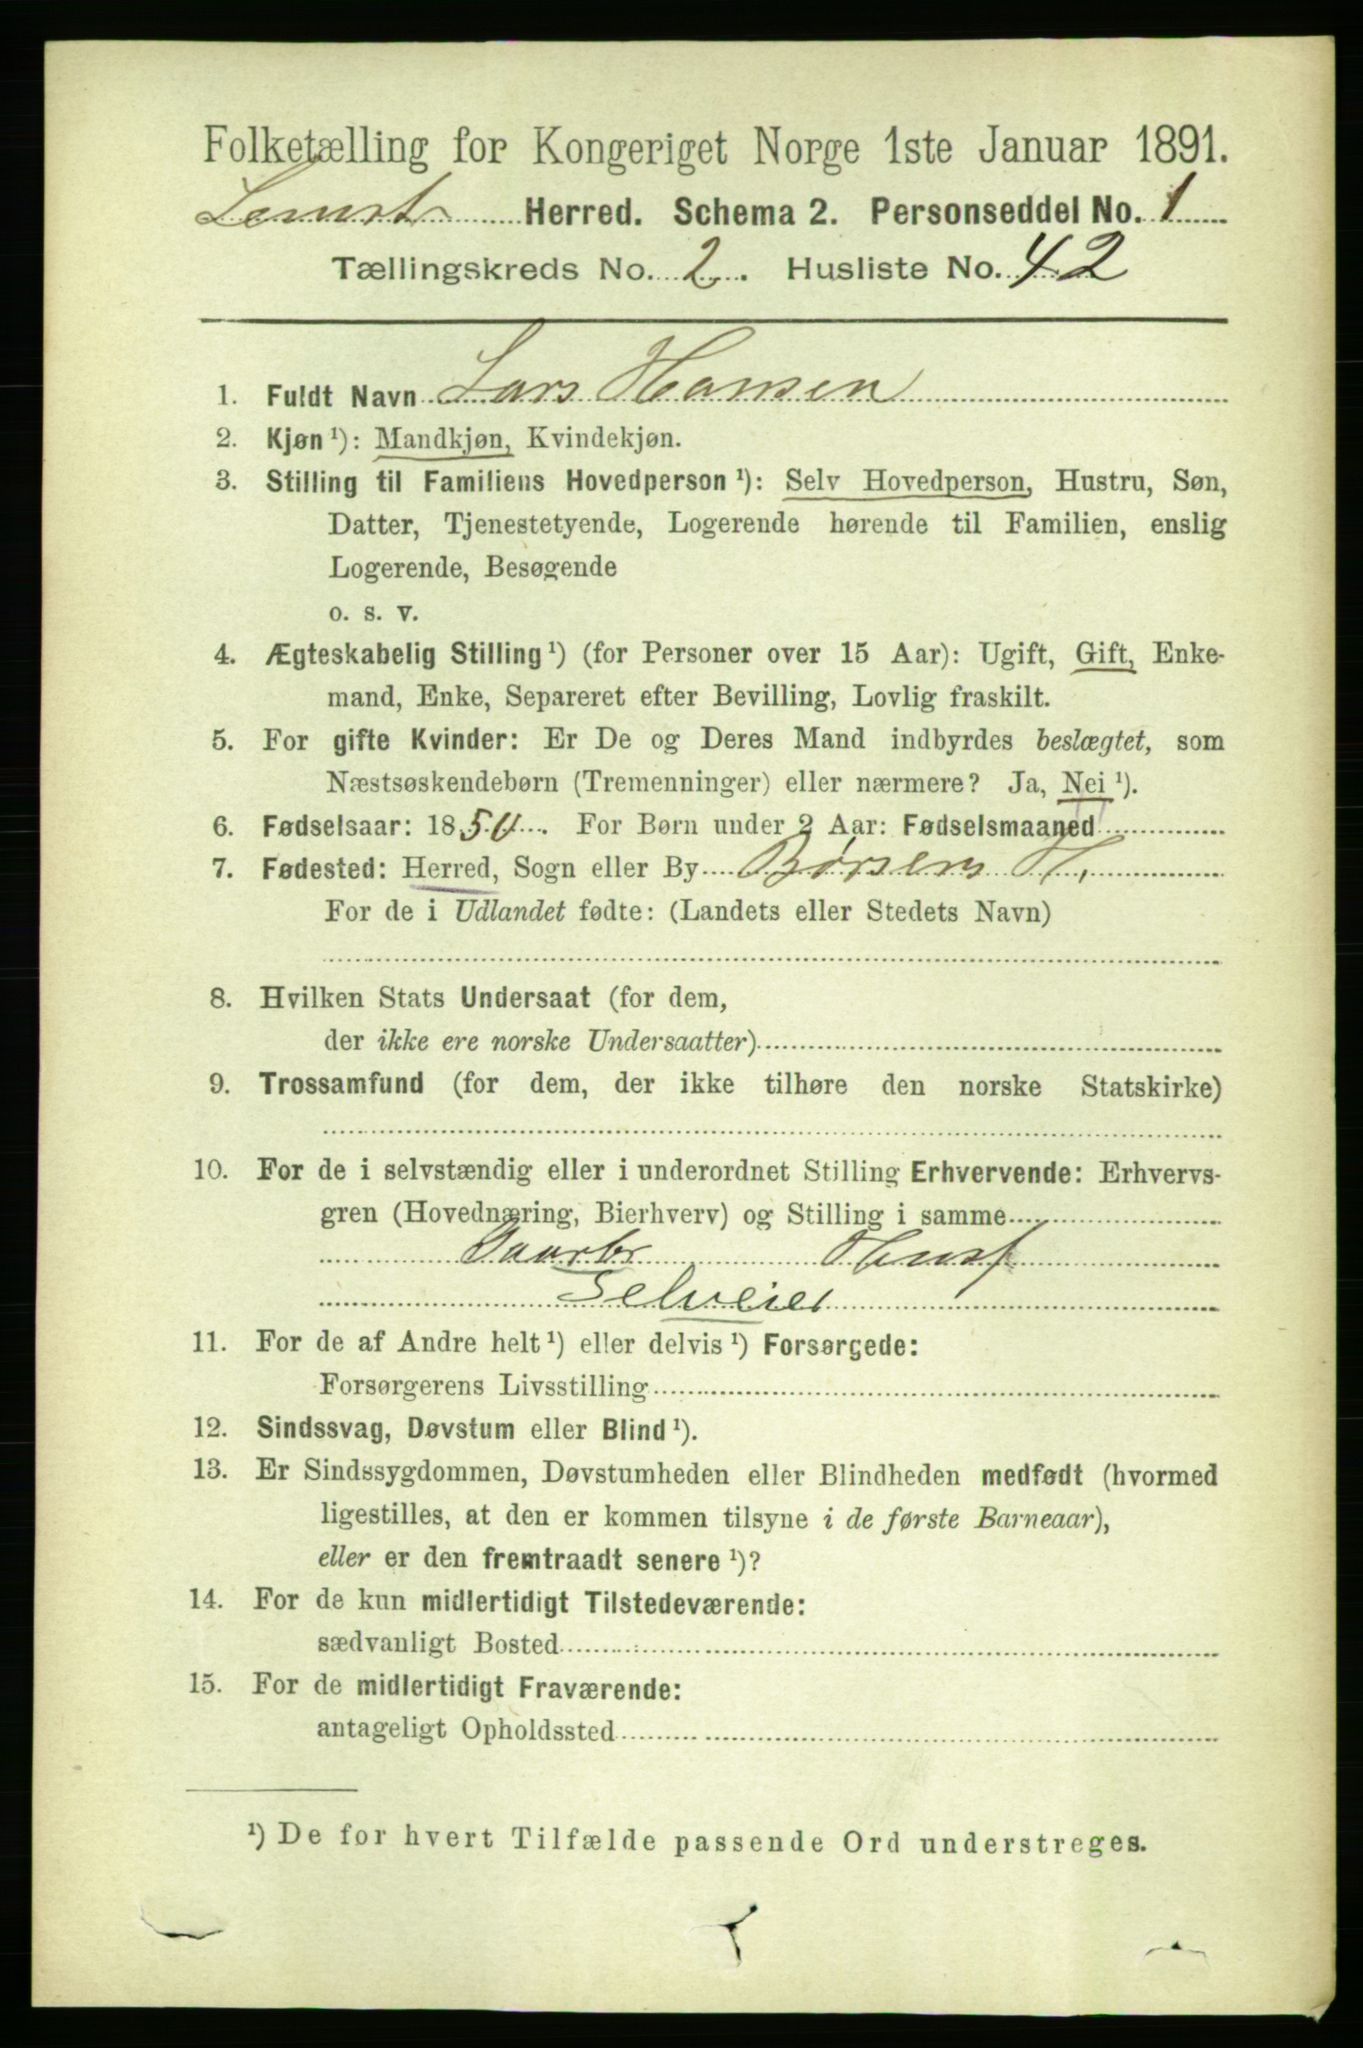 Folketælling for Kongeriget Norge 1ste Januar 1891.
Herred. Schema 2. Personseddel No. 1
Tællingskreds No. 2. Husliste No. 42
1. Fuldt Navn Lars Hansen
2. Kjøn ¹): Mandkjøn, Kvindekjøn.
3. Stilling til Familiens Hovedperson ¹): Selv Hovedperson, Hustru, Søn,
Datter, Tjenestetyende, Logerende hørende til Familien, enslig
Logerende, Besøgende
o. s. v.
4. Ægteskabelig Stilling ¹) (for Personer over 15 Aar): Ugift, Gift, Enke-
mand, Enke, Separeret efter Bevilling, Lovlig fraskilt.
5. For gifte Kvinder: Er De og Deres Mand indbyrdes beslægtet, som
Næstsøskendebørn (Tremenninger) eller nærmere? Ja, Nei ¹).
6. Fødselsaar: 1850. For Børn under 2 Aar: Fødselsmaaned
7. Fødested: Herred, Sogn eller By Børsen H.
For de i Udlandet fødte: (Landets eller Stedets Navn)
8. Hvilken Stats Undersaat (for dem,
der ikke ere norske Undersaatter)
9. Trossamfund (for dem, der ikke tilhøre den norske Statskirke)
10. For de i selvstændig eller i underordnet Stilling Erhvervende: Erhvervs-
gren (Hovednæring, Bierhverv) og Stilling i samme
Gaardbr Husf
Selveier
11. For de af Andre helt ¹) eller delvis ¹) Forsørgede:
Forsørgerens Livsstilling
12. Sindssvag, Døvstum eller Blind ¹).
13. Er Sindssygdommen, Døvstumheden eller Blindheden medfødt (hvormed
ligestilles, at den er kommen tilsyne i de første Barneaar),
eller er den fremtraadt senere ¹)?
14. For de kun midlertidigt Tilstedeværende:
sædvanligt Bosted
15. For de midlertidigt Fraværende:
antageligt Opholdssted
¹) De for hvert Tilfælde passende Ord understreges.